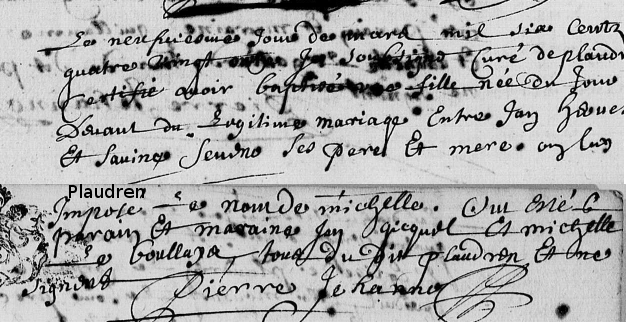 Le neuf​viesme Jour de mars mil six Centz
quatre Vingt onze Je soubsigné Curé de plaudr
Certifie avoir baptisé une fille née du Jour
Devant du Legitime mariage Entre Jan
Et Savine Seveno Ses pere Et mere on luy
Plaudren
Imposé Le nom de michelle. Ont esté
parain Et maraine Jan Jicquel Et michelle
Le boullaye tous du dit plaudren Et ne
Signent Pierre Jehanno